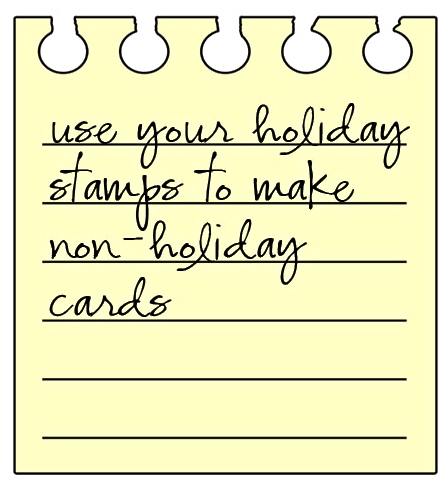 use your holiday
stamps to make
non-holiday
cards